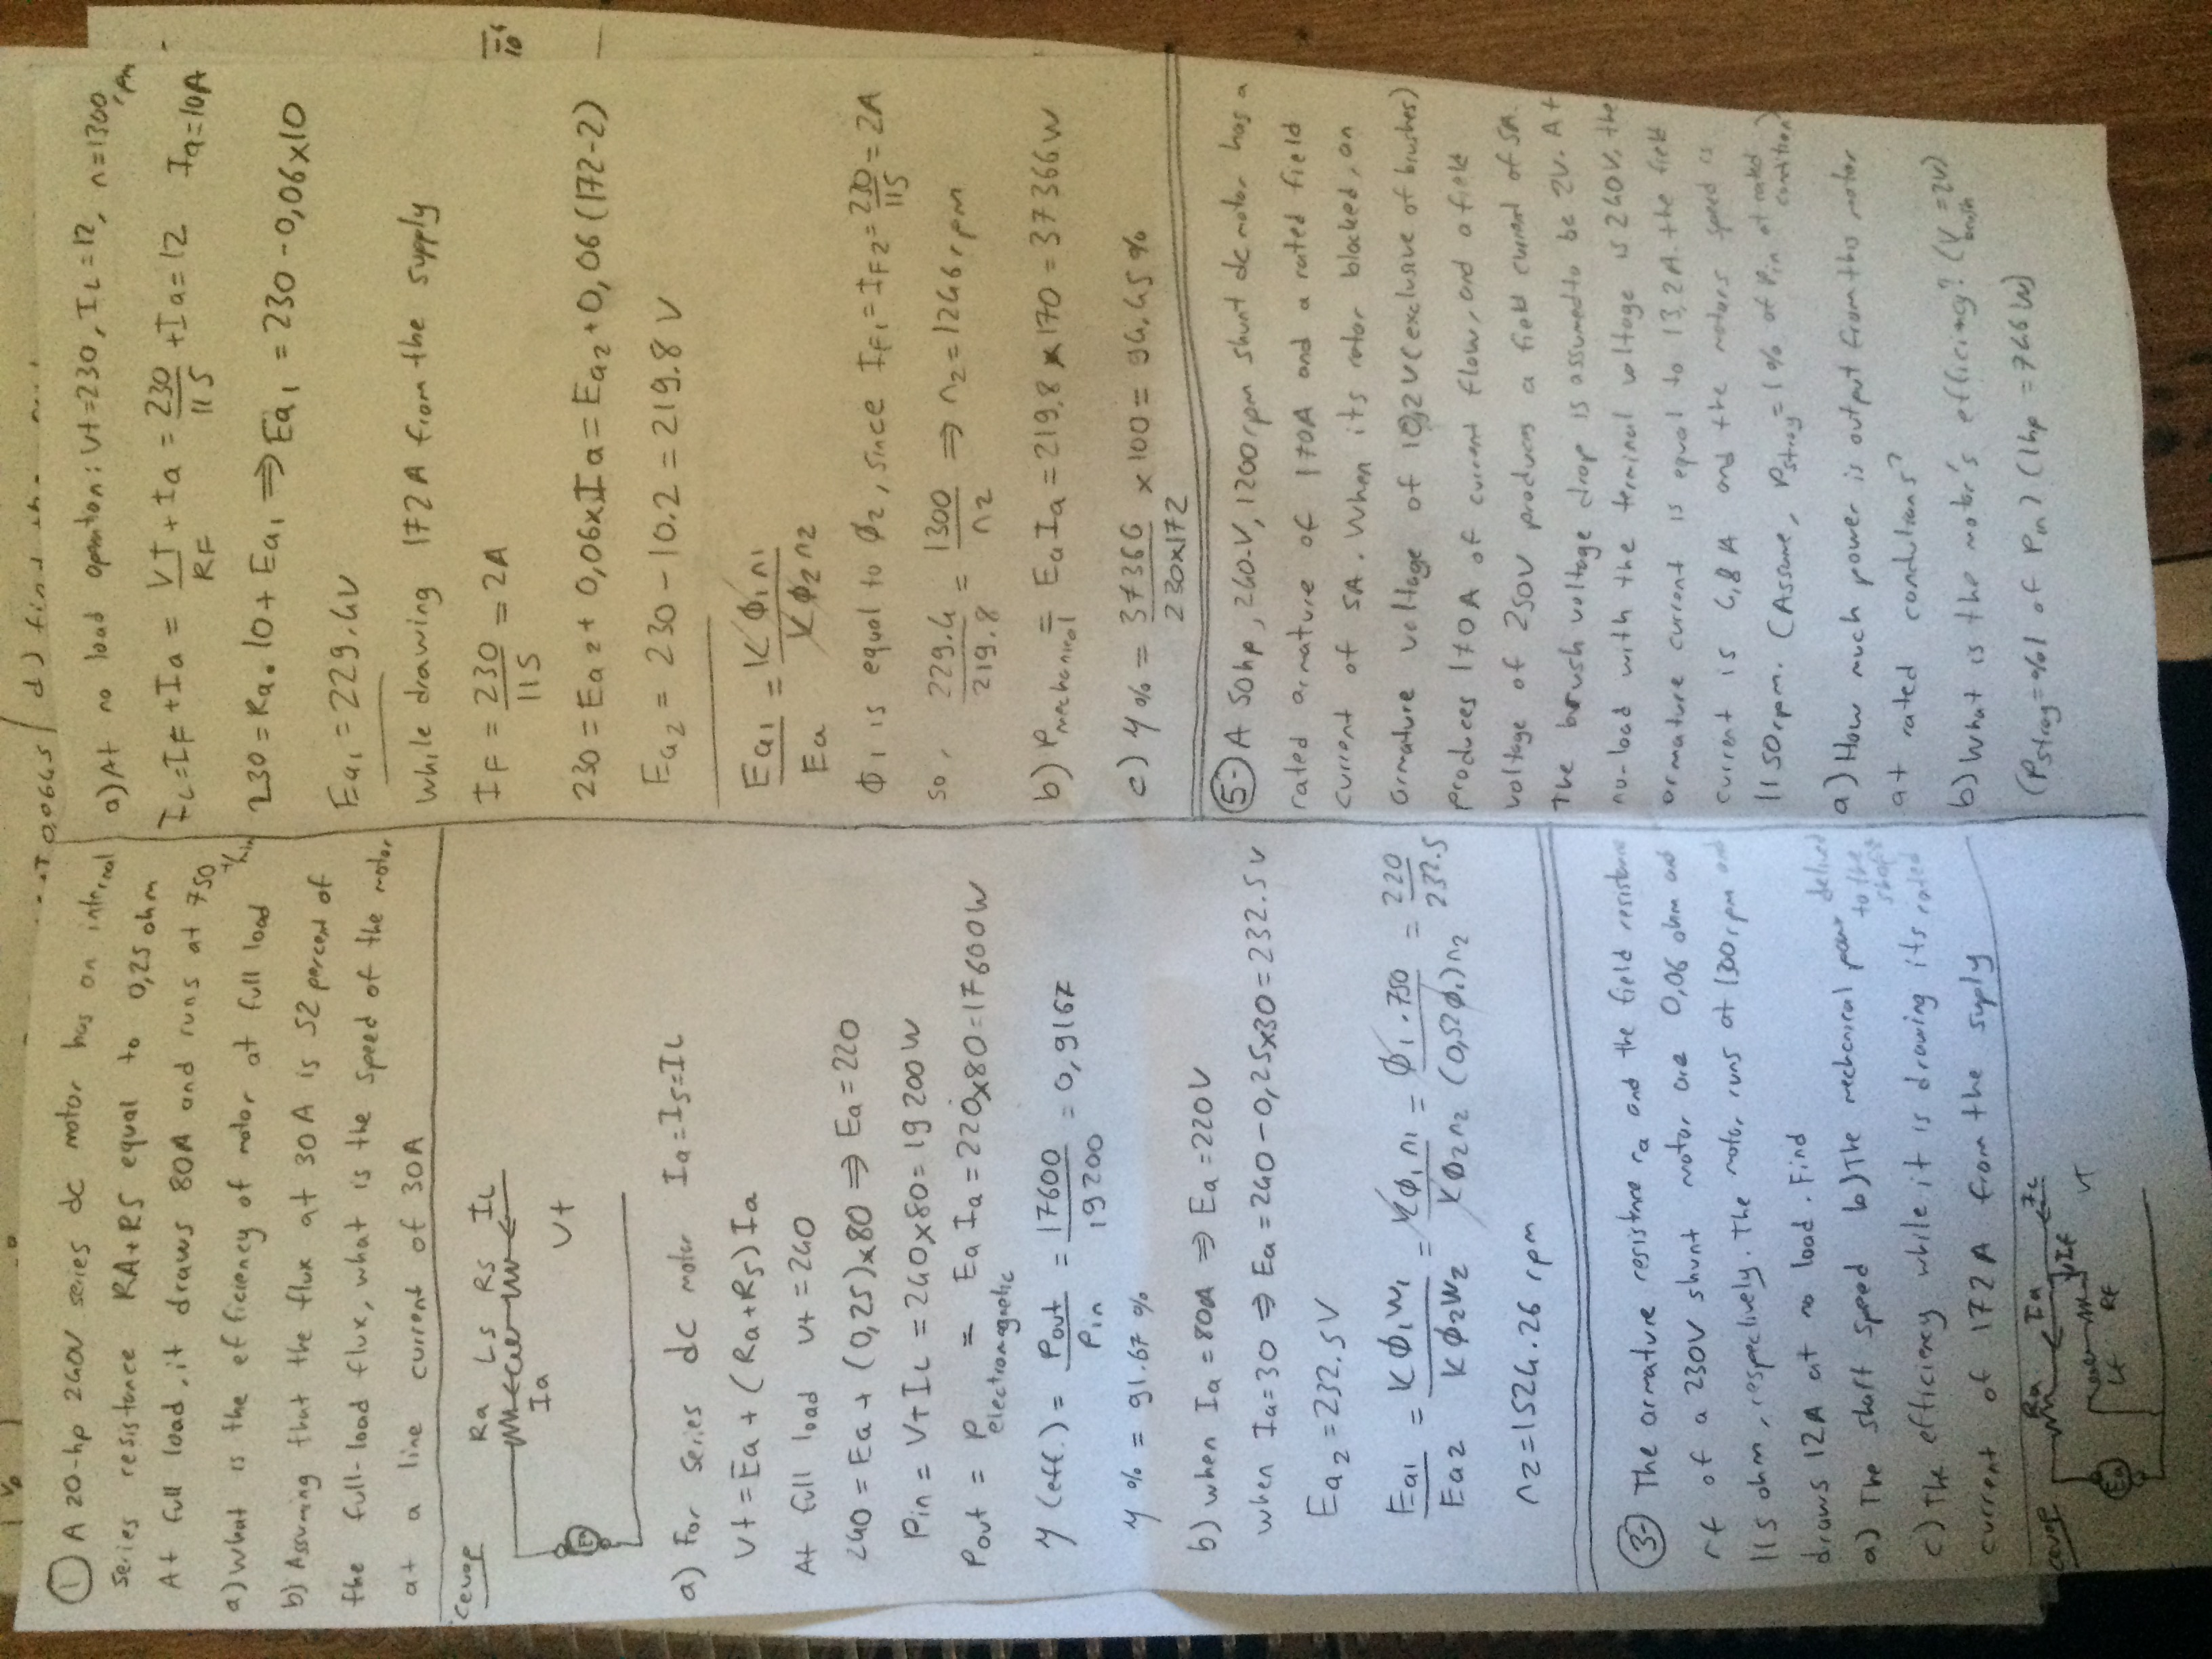 ① A 20-hp 240V series dc motor has an internal
series resistance RA+RS equal to 0,25 ohm
At full load, it draws 80A and runs at 750 r/min
a) What is the efficiency of motor at full load
b) Assuming that the flux at 30A is 52 percent of
the full-load flux, what is the speed of the motor
at a line current of 30A
cevap
Ra Ls Rs IL
Ia
Ea
Vt
a) For series dc motor Ia=Is=IL
Vt = Ea + (Ra+Rs) Ia
At full load Vt = 240
240 = Ea + (0,25)x80 ⇒ Ea = 220
Pin = V+IL = 240x80 = 19200W
Pout = P electromagnetic = Ea Ia = 220x80 = 17600W
η (eff.) = Pout / Pin = 17600 / 19200 = 0,9167
η % = 91.67 %
b) when Ia = 80A ⇒ Ea = 220V
when Ia=30 ⇒ Ea = 240 - 0,25x30 = 232.5V
Ea2 = 232.5V
Ea1 / Ea2 = Kφ1w1 / Kφ2w2 = Kφ1n1 / Kφ2n2 = φ1.750 / (0,52φ1)n2 = 220 / 232.5
n2 = 1524.26 rpm
③- The armature resistance ra and the field resistance
rf of a 230V shunt motor are 0,06 ohm and
115 ohm, respectively. The motor runs at 1300 rpm and
draws 12A at no load. Find
a) The shaft speed b) The mechanical power delived to the shaft
c) The efficiency while it is drawing its rated
current of 172 A from the supply
cevap
Ra Ia IL
Ea
Lf
RF
If
VT
d) find
a) At no load operation: Vt=230, IL=12, n=1300 rpm
IL = IF + Ia = VT / RF + Ia = 230 / 115 + Ia = 12 Ia = 10A
230 = Ra.10 + Ea1 ⇒ Ea1 = 230 - 0,06x10
Ea1 = 229.4V
While drawing 172A from the supply
IF = 230 / 115 = 2A
230 = Ea2 + 0,06xIa = Ea2 + 0,06 (172-2)
Ea2 = 230 - 10.2 = 219.8 V
Ea1 / Ea = Kφ1n1 / Kφ2n2
φ1 is equal to φ2, since IF1 = IF2 = 230 / 115 = 2A
so, 229.4 / 219.8 = 1300 / n2 ⇒ n2 = 1246 rpm
b) Pmechanical = EaIa = 219,8 x 170 = 37366W
c) η % = 37366 / 230x172 x 100 = 94,45 %
⑤- A 50hp, 240-V, 1200 rpm shunt dc motor has a
rated armature of 170A and a rated field
current of 5A. When its rotor blocked, an
armature voltage of 10,2V (exclusive of brushes)
produces 170A of current flow, and a field
voltage of 250V produces a field current of 5A.
The brush voltage drop is assumed to be 2V. At
no-load with the terminal voltage is 240V, the
armature current is equal to 13,2A the field
current is 4,8A and the motors speed is
1150 rpm. (Assume, Pstray = 1% of Pin at rated condition)
a) How much power is output from this motor
at rated conditions?
b) What is the motor's efficiency? (Vbrush = 2V)
(Pstray = %1 of Pin) (1hp = 746W)